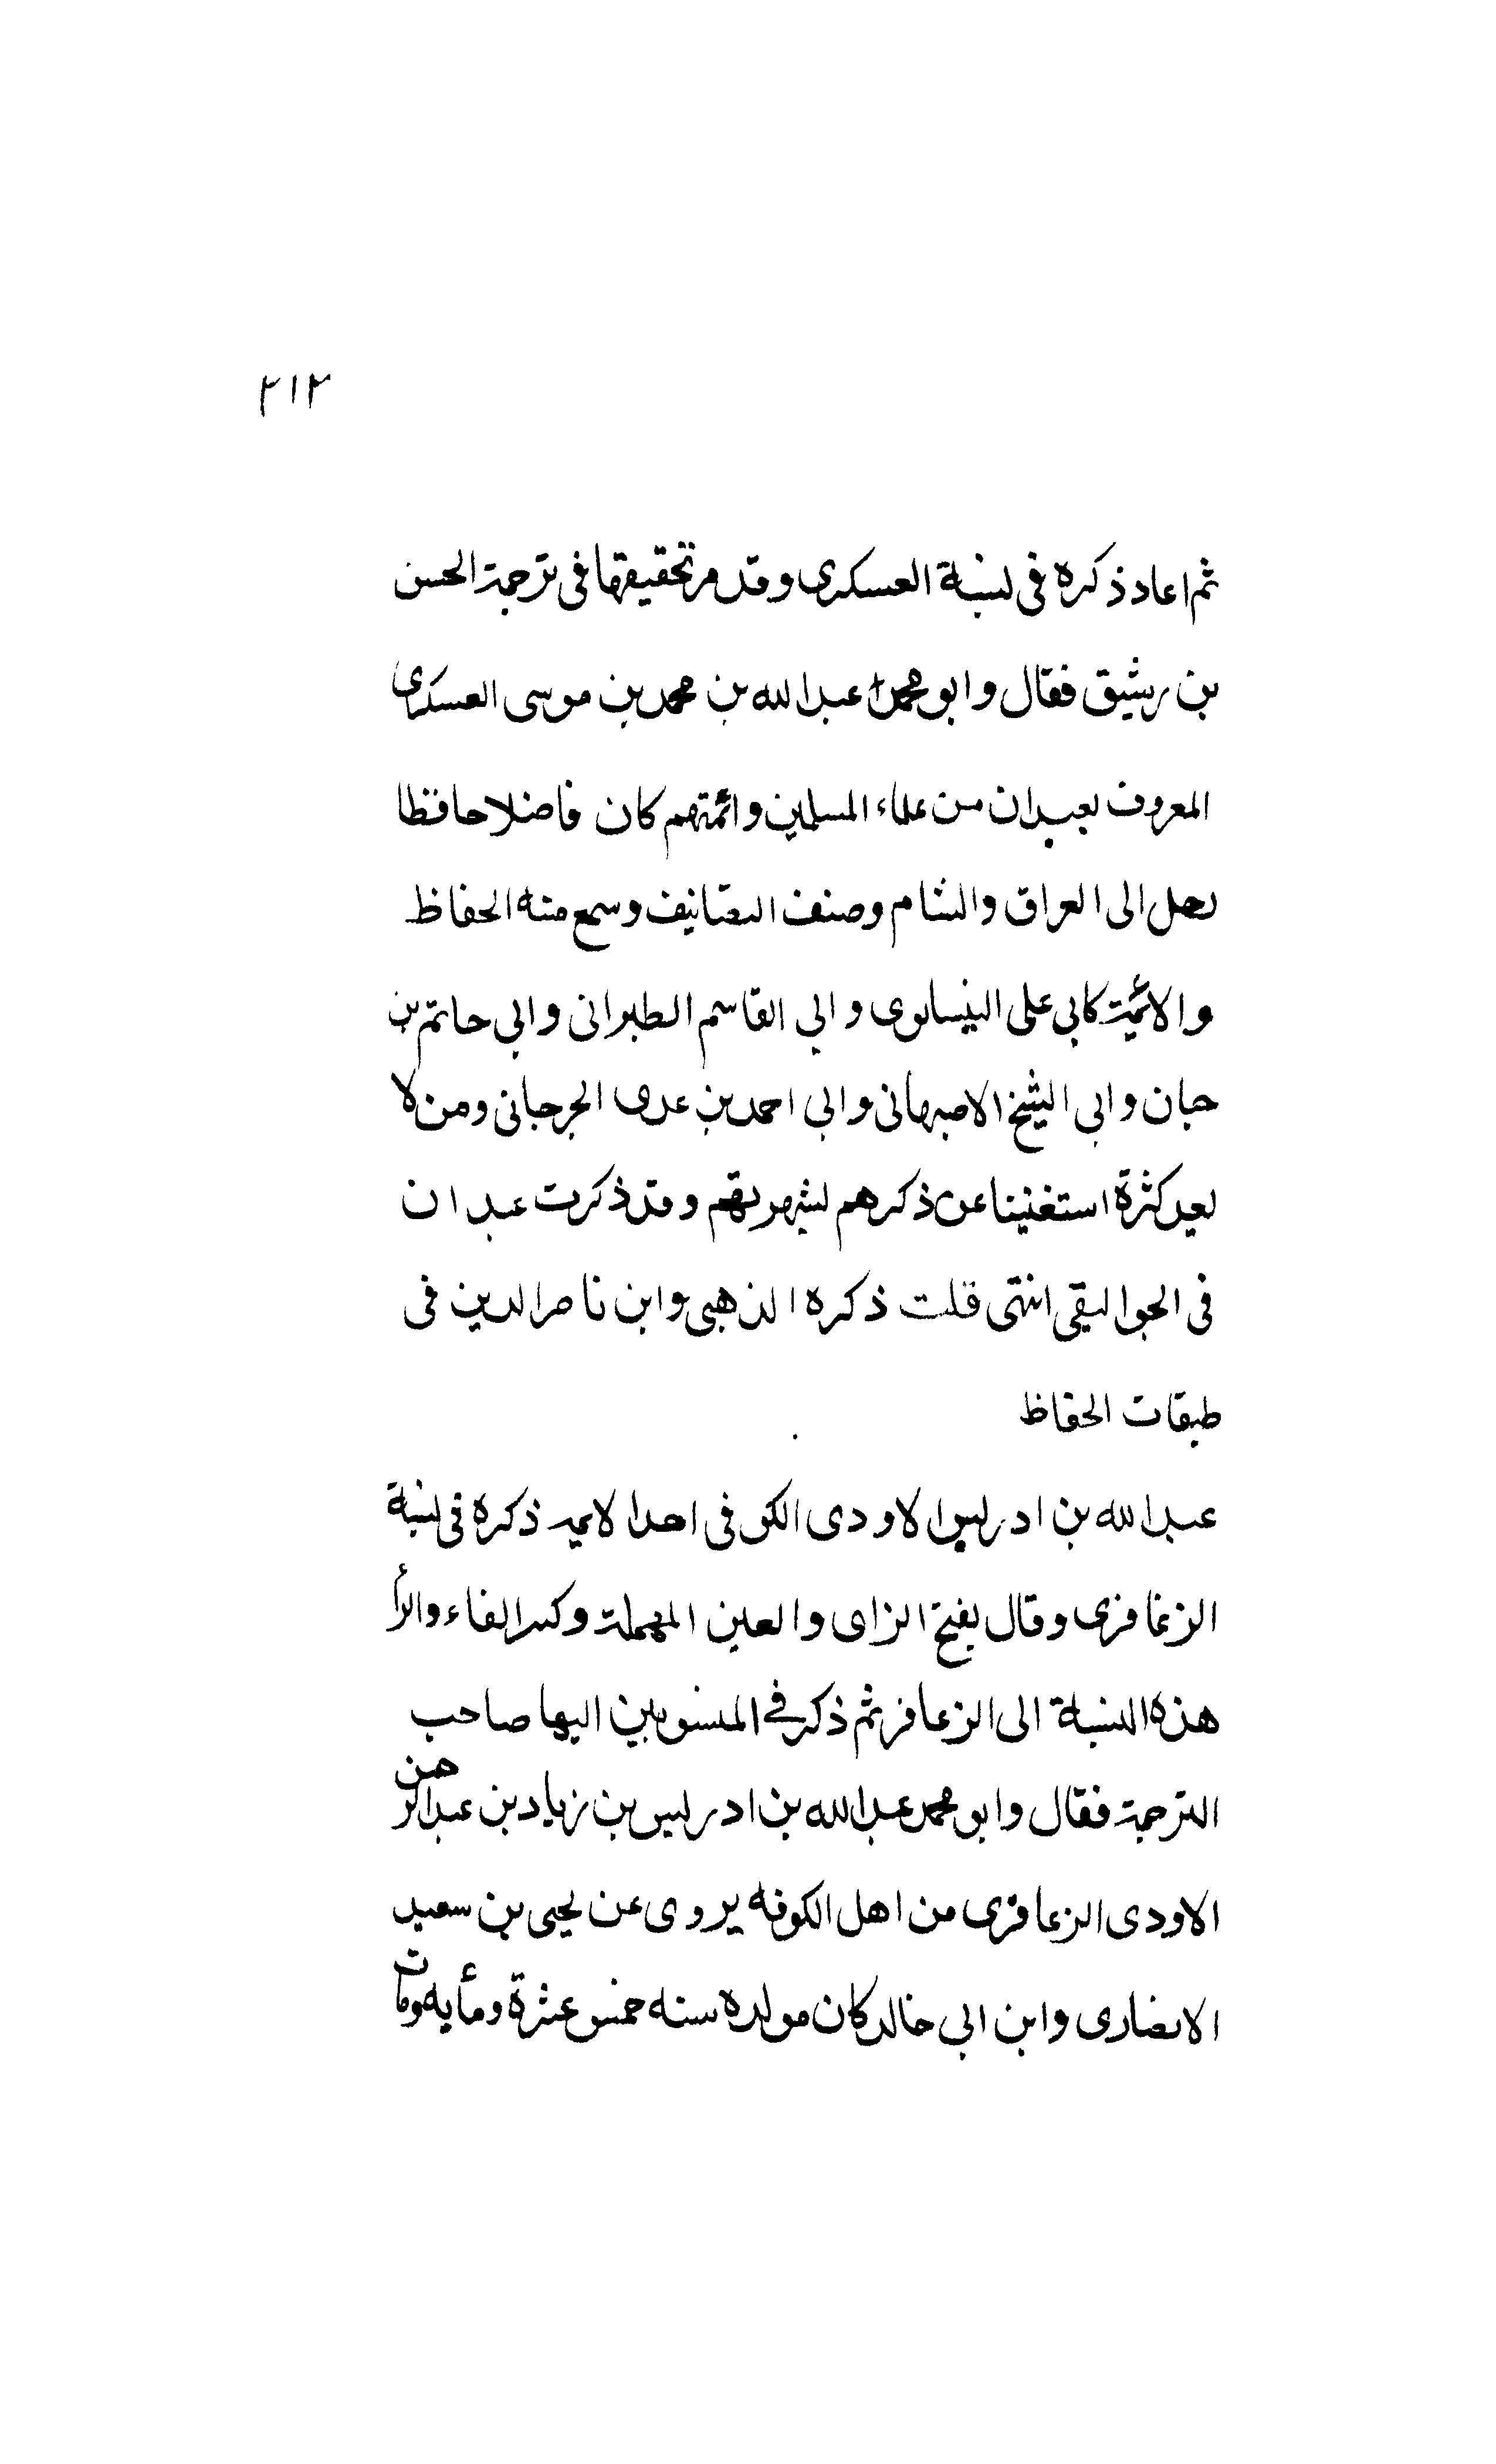 ٢١٢
ثم اعاد ذكره فى نسبة العسكرى وقد مر تحقيقها فى ترجمة الحسن
بن رشيق فقال وابو محمد عبد الله بن محمد بن موسى العسكرى
المعروف بعبدان من علماء المسلمين وائمتهم كان فاضلا حافظا
رحل الى العراق والشام وصنف التصانيف وسمع منه الحفاظ
والائمة كابي على النيسابوى و ابي القاسم الطبرانى وابي حاتم بن
حبان وابى الشيخ الاصبهانى وابي احمد بن عدى الجرجانى ومن لا
يعد كثرة استغنينا عن ذكرهم لشهرتهم وقد ذكرت عبدان
فى الجواليقى انتهى قلت ذكره الذهبى وابن ناصر الدين فى
طبقات الحفاظ
عبد الله بن ادريس الاودى الكوفى احد الايمه ذكره فى نسبة
الزعافرى وقال بفتح الزاى والعين المهملة وكسر الفاء والرأ
هذه النسبة الى الزعافر ثم ذكر فے المنسوبين اليها صاحب
الترجمة فقال وابو محمد عبد الله بن ادريس بن زياد بن عبد الرحمن
الاودى الزعافرى من اهل الكوفه يروى عن يحيى بن سعيد
الانصارى وابن ابي خالد كان مولده سنه خمس عشرة ومأيه ومات